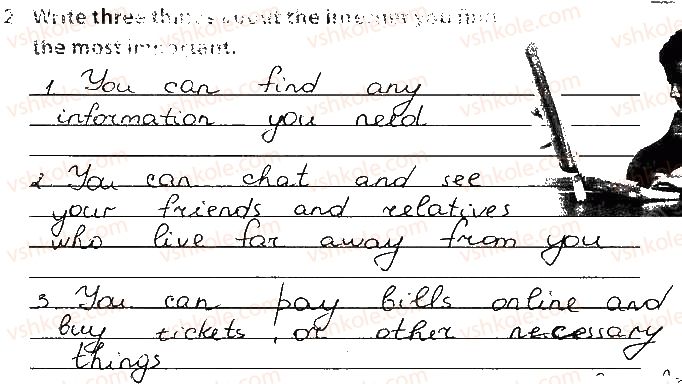 2 Write three things about the internet you find
the most important.
1. You can find any
information you need
2. You can chat and see
your friends and relatives
who live far away from you
3. You can pay bills online and
buy tickets, or other necessary
things
vshkole.com